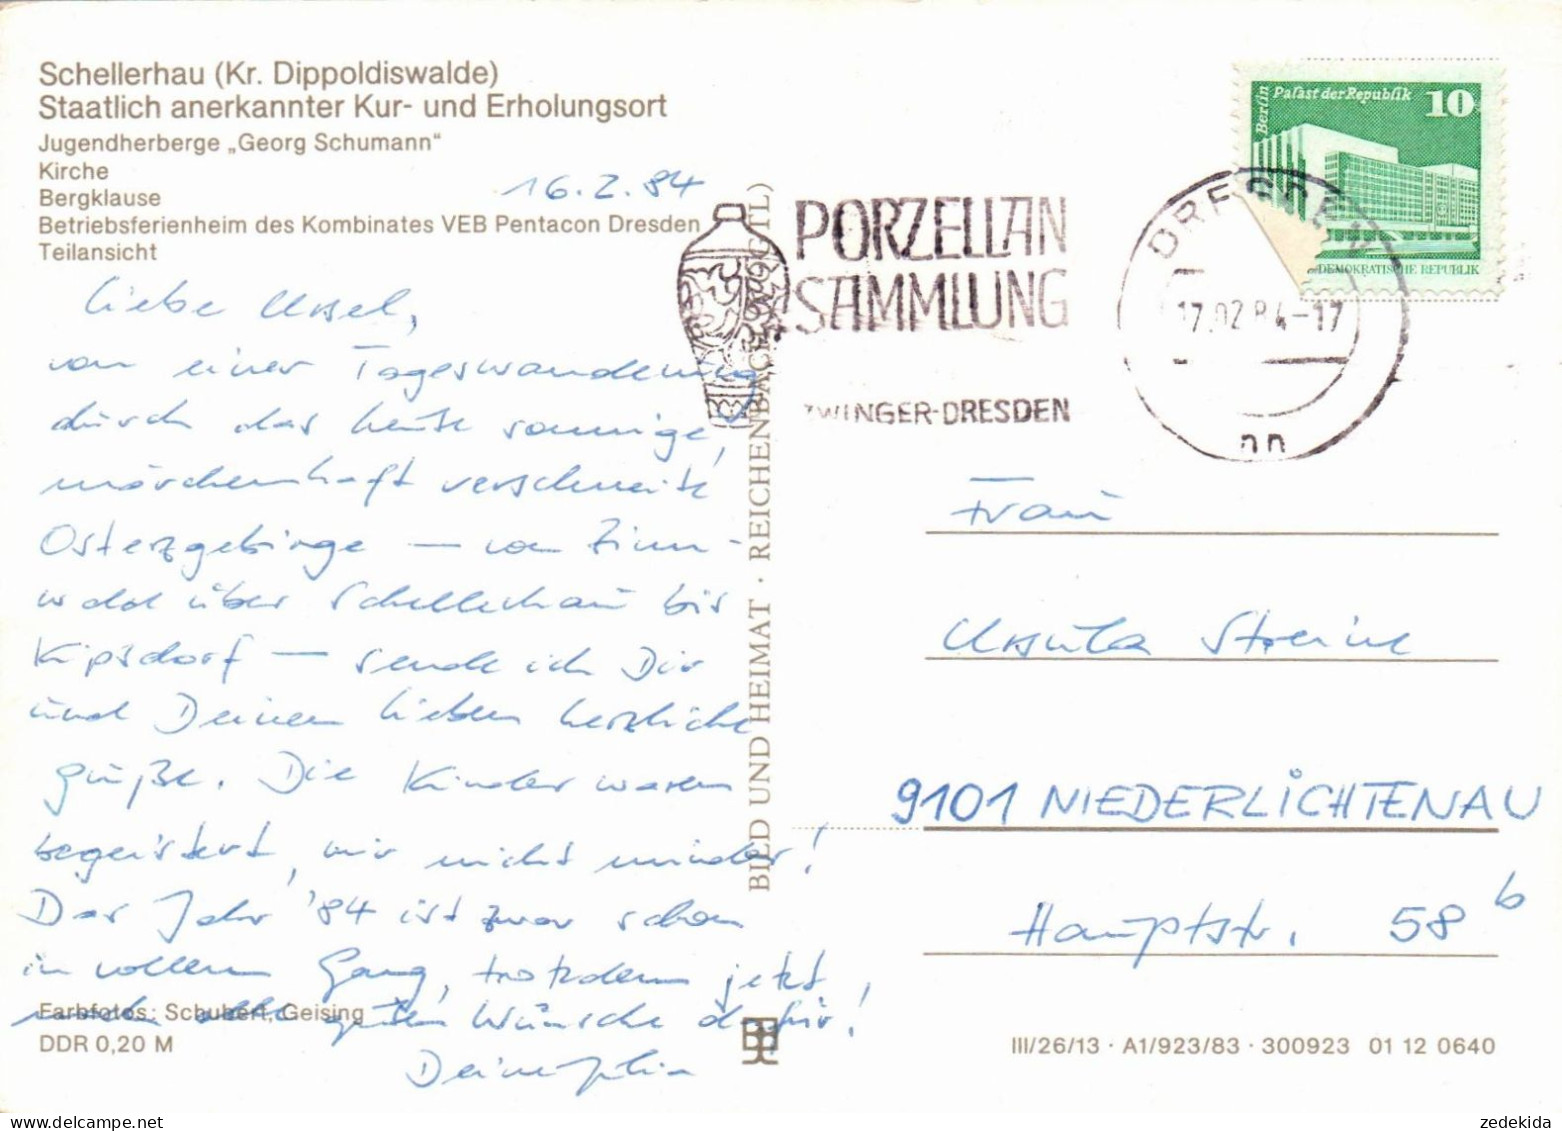 Schellerhau (Kr. Dippoldiswalde)
Staatlich anerkannter Kur- und Erholungsort
Jugendherberge „Georg Schumann“
Kirche
Bergklause
Betriebsferienheim des Kombinates VEB Pentacon Dresden
Teilansicht
16.2.84
Liebe Ursel,
von einer Tageswanderung
durch das heute sonnige,
märchenhaft verschneite
Osterzgebirge – von Zinn-
wald über Schellerhau bis
Kipsdorf – sende ich Dir
und Deinen Lieben herzliche
Grüße. Die Kinder waren
begeistert, wir nicht minder!
Das Jahr '84 ist zwar schon
in vollem Gang, trotzdem jetzt
noch alle guten Wünsche dafür!
Farbfotos: Schubert, Geising
DDR 0,20 M
BILD UND HEIMAT · REICHENBACH (VOGTL)
PORZELLAN
SAMMLUNG
ZWINGER-DRESDEN
DRESDEN
17.02.84-17
Berlin Palast der Republik 10
DEMOKRATISCHE REPUBLIK
Frau
Ursula
9101 NIEDERLICHTENAU
Hauptstr. 58 b
III/26/13 · A1/923/83 · 300923 01 12 0640
zedekida